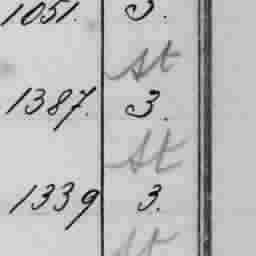 1051. 3.
st
1387. 3.
st
1339 3.
st